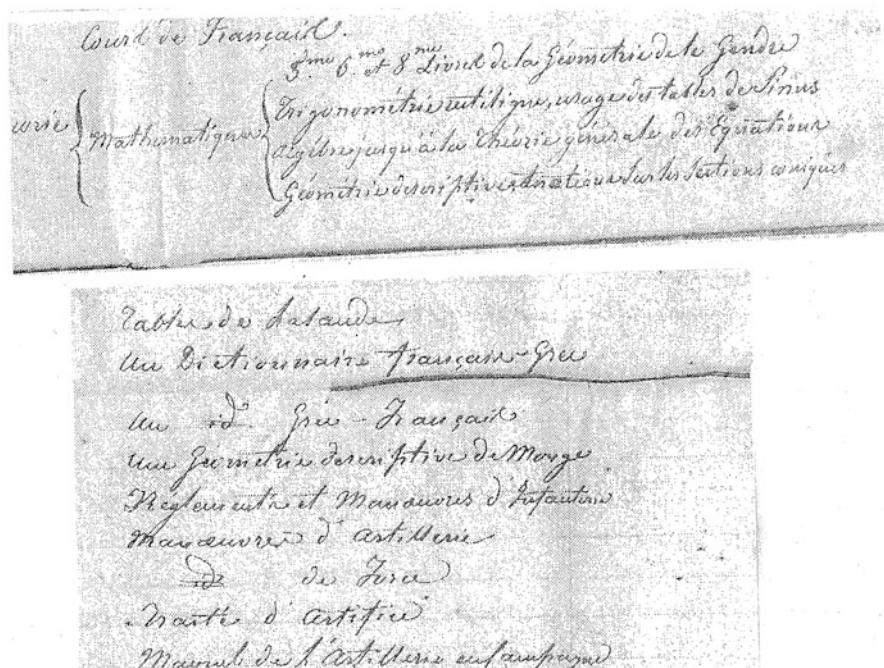 Cours de Français.
5.me 6.me et 8.me Livres de la Géométrie de le Gendre
Trigonométrie rectiligne, usage des tables de Sinus
orie Mathématiques
Algèbre jusqu'à la théorie générale des Equations
Géométrie descriptive, notions sur les Sections coniques
Tables de Lalande
Un Dictionnaire français-Grec
Un id. Grec-Français
Une Géometrie descriptive de Monge
Réglements et Manœuvres d'Infanterie
Manœuvres d'Artillerie
id de Force
Traité d'Artifice
Manuel de l'Artillerie en Campagne